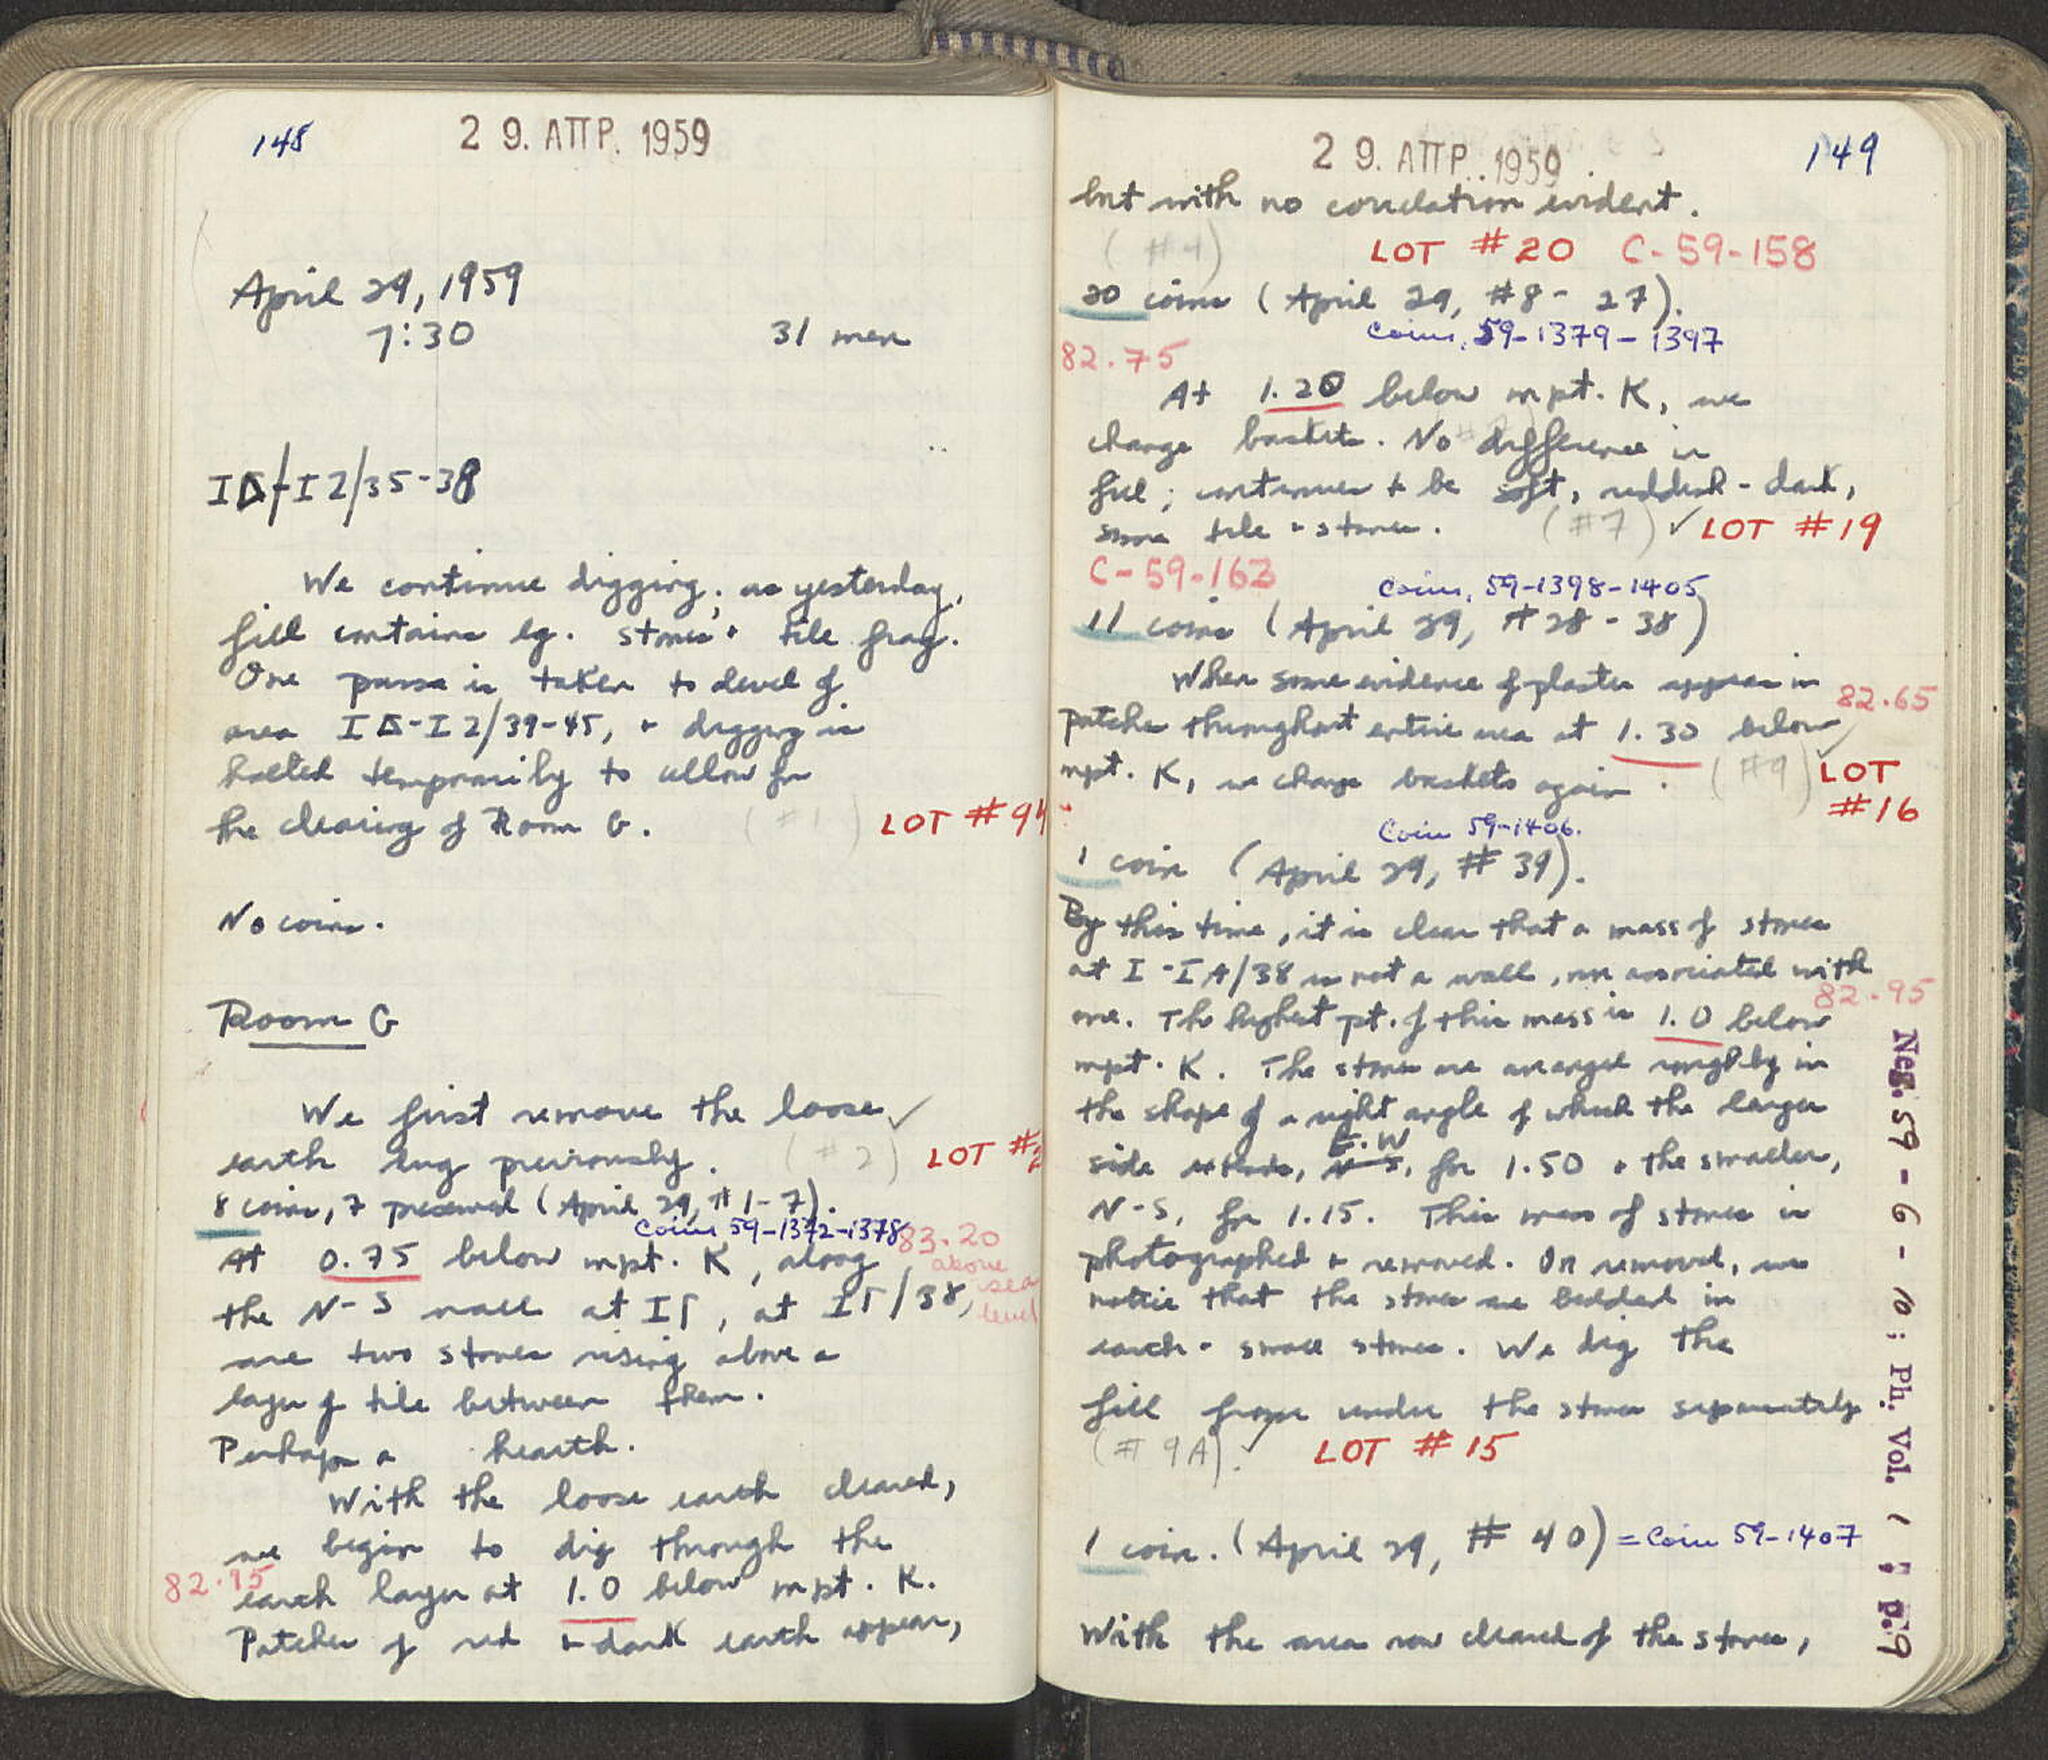 148
29. ΑΠΡ. 1959
April 29, 1959
7:30 31 men
IΔ-IZ/35-38
We continue digging; as yesterday,
fill contains lg. stones + tile frag.
One passa is taken to level of
area IΔ-IZ/39-45, + digging is
halted temporarily to allow for
the clearing of Room G. (#1) LOT #94
No coins.
Room G
We first remove the loose ✓
earth dug previously. (#2) LOT #2
8 coins, 7 preserved (April 29, #1-7).
Coins 59-1372-1378
83.20 above sea level
At 0.75 below mpt. K, along
the N-S wall at IΓ, at IΓ/38,
are two stones rising above a
layer of tile between them.
Perhaps a hearth.
With the loose earth cleared,
we begin to dig through the
82.95
earth layer at 1.0 below mpt. K.
Patches of red + dark earth appear,
29. ΑΠΡ. 1959
149
but with no correlation evident.
(#4) LOT #20 C-59-158
20 coins (April 29, #8-27).
Coins, 59-1379-1397
82.75
At 1.20 below mpt. K, we
change baskets. No difference in
fill; continues to be soft, reddish-dark,
some tile + stones. (#7) ✓ LOT #19
C-59-163
Coins, 59-1398-1405
11 coins (April 29, #28-38)
When some evidence of plaster appears in
82.65
patches throughout entire area at 1.30 below
mpt. K, we change baskets again. (#9) ✓ LOT #16
Coin 59-1406.
1 coin (April 29, #39).
By this time, it is clear that a mass of stones
at I-IA/38 is not a wall, nor associated with
82.95
one. The highest pt. of this mass is 1.0 below
mpt. K. The stones are arranged roughly in
the shape of a right angle of which the larger
side extends, N-S, E-W for 1.50 + the smaller,
N-S, for 1.15. This mass of stones is
photographed + removed. On removal, we
notice that the stones are bedded in
earth + small stones. We dig the
fill from under the stones separately
(#9A). ✓ LOT #15
1 coin. (April 29, #40) = Coin 59-1407
With the area now cleared of the stones,
Neg. 59-6-10; Ph. Vol. 1; p.9